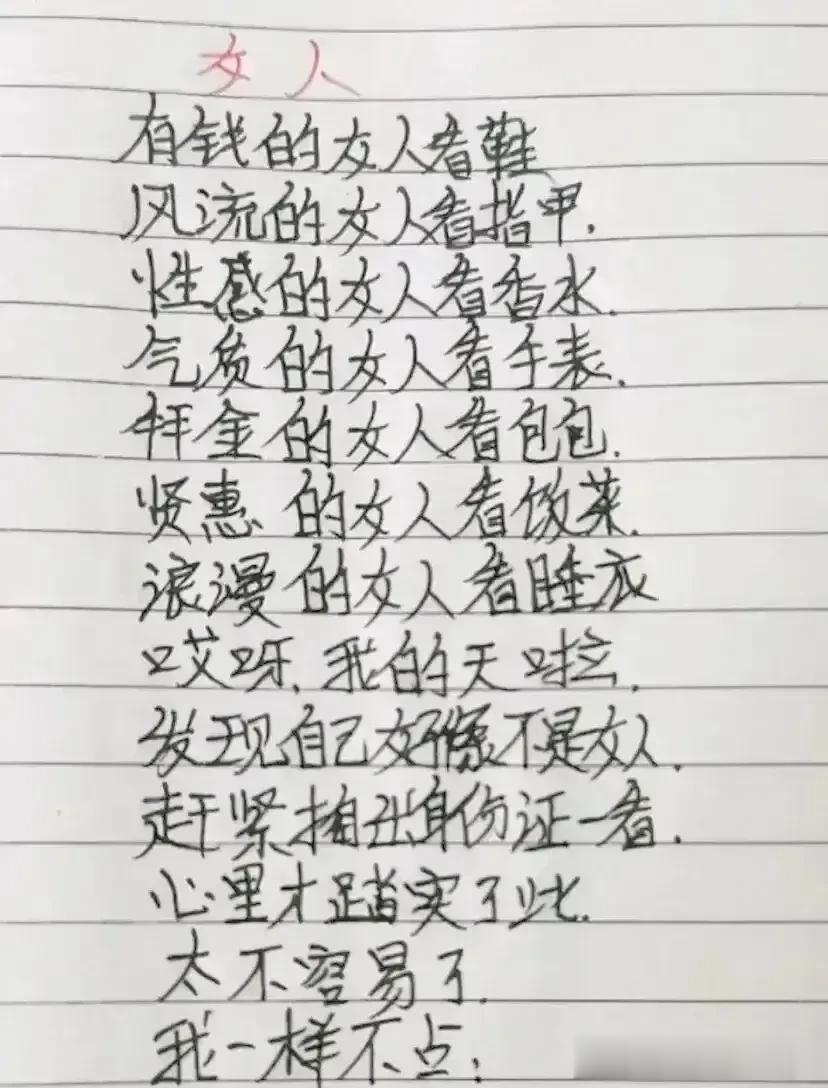 女人
有钱的女人看鞋
风流的女人看指甲.
性感的女人看香水.
气质的女人看手表.
拜金的女人看包包.
贤惠的女人看饭菜.
浪漫的女人看睡衣
哎呀.我的天啦.
发现自己好像不是女人.
赶紧掏出身份证一看.
心里才踏实了些.
太不容易了.
我一样不占;